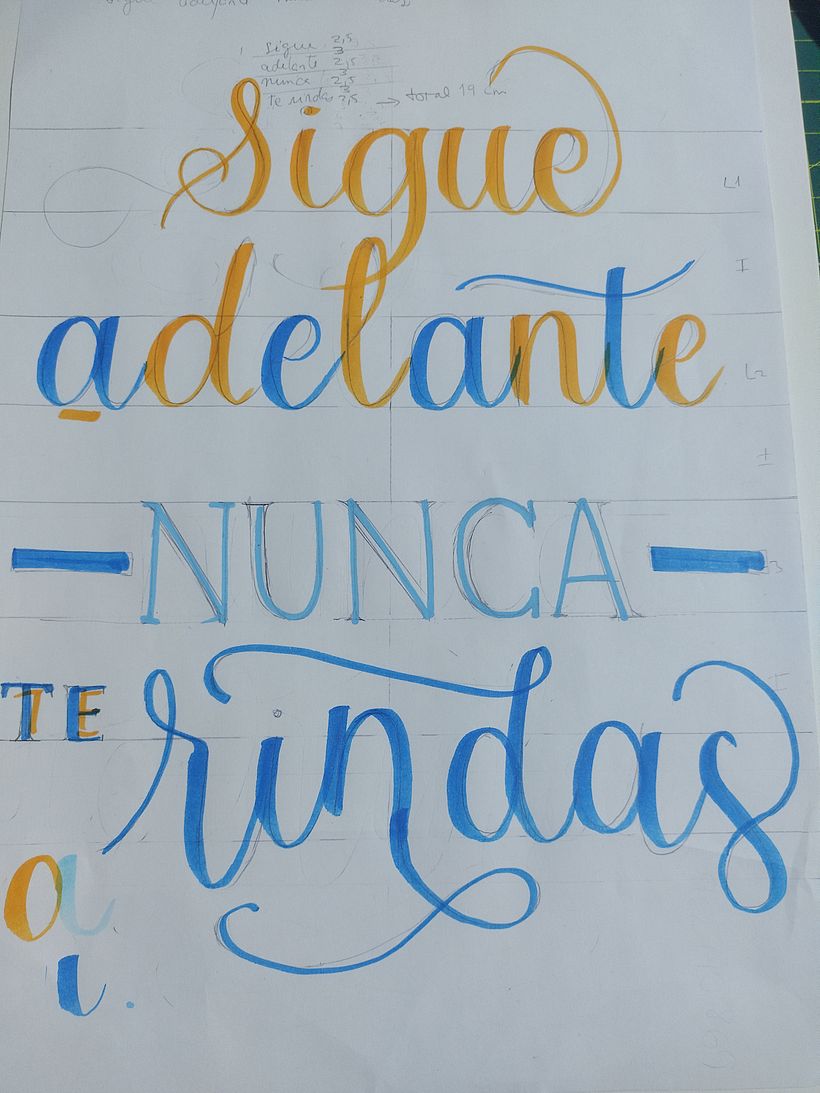 sigue 2,5
3
adelante 2,5
3
nunca 2,5
3
te rindas 2,5 → total 19 cm
Sigue
L1
I
adelante
L2
I
NUNCA
TE rindas
a
i.